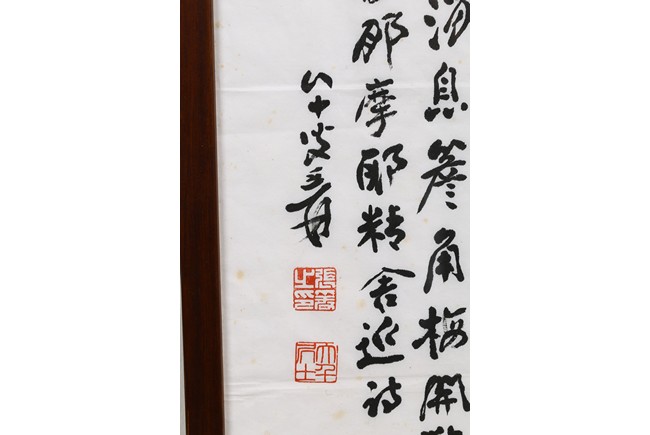 消息簷角梅開
摩耶精舍近詩
八十叟爰
張爰之印
大千居士